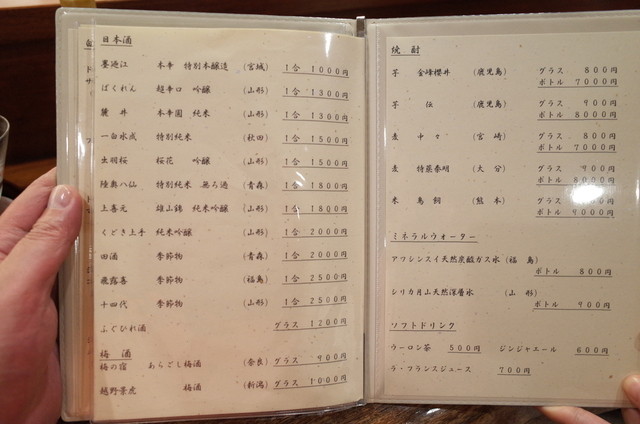 日本酒
墨廼江 本辛 特別本醸造 (宮城) 1合 1000円
ばくれん 超辛口 吟醸 (山形) 1合 1300円
麓井 本辛圓 純米 (山形) 1合 1300円
一白水成 特別純米 (秋田) 1合 1500円
出羽桜 桜花 吟醸 (山形) 1合 1500円
陸奥八仙 特別純米 無ろ過 (青森) 1合 1800円
上喜元 雄山錦 純米吟醸 (山形) 1合 1800円
くどき上手 純米吟醸 (山形) 1合 2000円
田酒 季節物 (青森) 1合 2000円
飛露喜 季節物 (福島) 1合 2500円
十四代 季節物 (山形) 1合 2500円
ふぐひれ酒 グラス 1200円
梅酒
梅の宿 あらごし梅酒 (奈良) グラス 900円
越野景虎 梅酒 (新潟) グラス 1000円
焼酎
芋 金峰櫻井 (鹿児島) グラス 800円
ボトル 7000円
芋 伝 (鹿児島) グラス 900円
ボトル 8000円
麦 中々 (宮崎) グラス 800円
ボトル 7000円
麦 特蒸泰明 (大分) グラス 900円
ボトル 8000円
米 鳥飼 (熊本)
ボトル 9000円
ミネラルウォーター
アワシンスイ天然炭酸ガス水 (福島)
ボトル 800円
シリカ月山天然深層水 (山形)
ボトル 900円
ソフトドリンク
ウーロン茶 500円 ジンジャエール 600円
ラ・フランスジュース 700円